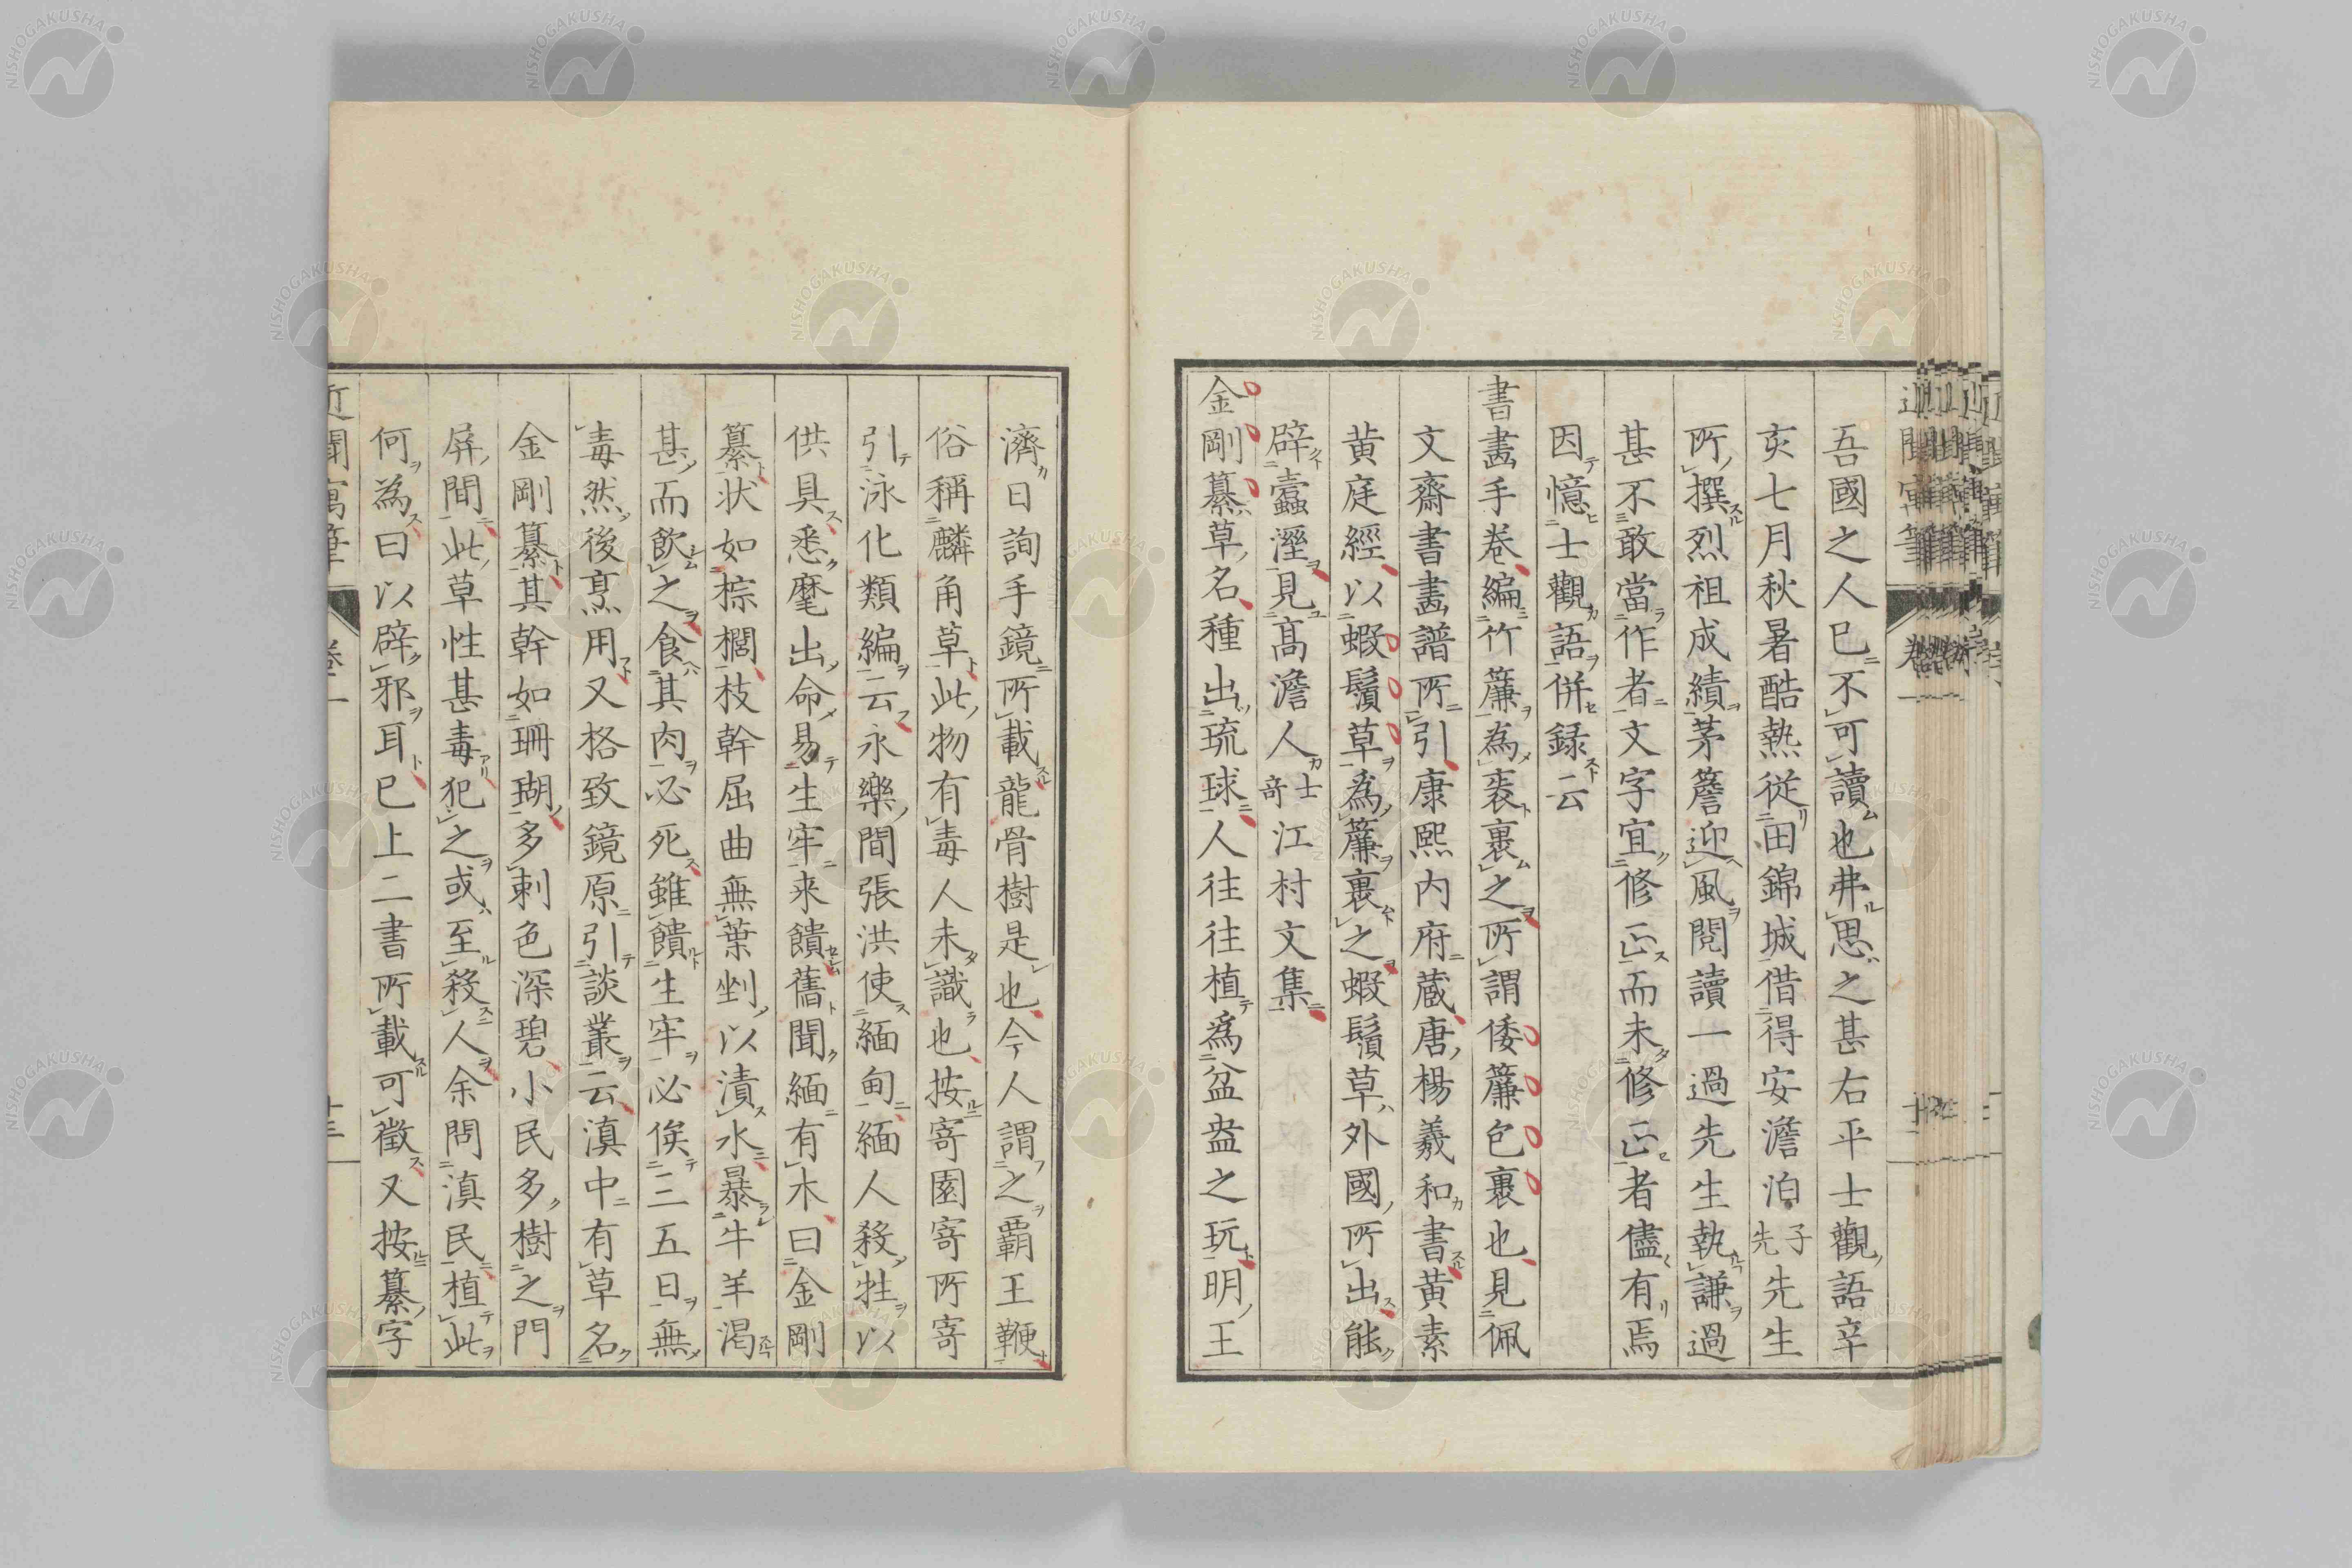 吾國之人已不可讀也弗思之甚右平士觀語辛
亥七月秋暑酷熱従田錦城借得安澹泊先子先生
所撰烈祖成績茅簷迎風閲讀一過先生執謙過
甚不敢當作者文字宜修正而未修正者儘有焉
因憶士觀語併録云
書畵手卷編竹簾為裹之所謂倭簾包裹也見佩
文齋書畵譜所引康熙内府蔵唐楊羲和書黄素
黄庭經以蝦鬚草為簾裏之蝦鬚草外國所出能
辟蠹溼見髙澹人士竒江村文集
金剛纂草名種出琉球人往往植為盆盎之玩明王
濟日詢手鏡所載龍骨樹是也今人謂之覇王鞭
俗稱麟角草此物有毒人未識也按寄園寄所寄
引泳化類編云永樂間張洪使緬甸緬人殺牲以
供具悉麾出命易生牢来饋舊聞緬有木曰金剛
纂状如椶櫚枝幹屈曲無葉剉以漬水暴牛羊渇
甚而飲之食其肉必死雖饋生牢必俟三五日無
毒然後烹用又格致鏡原引談叢云滇中有草名
金剛纂其幹如珊瑚多刺色深碧小民多樹之門
屏間此草性甚毒犯之或至殺人余問滇民植此
何為曰以辟邪耳已上二書所載可徴又按纂字
近聞寓筆 巻一 十三